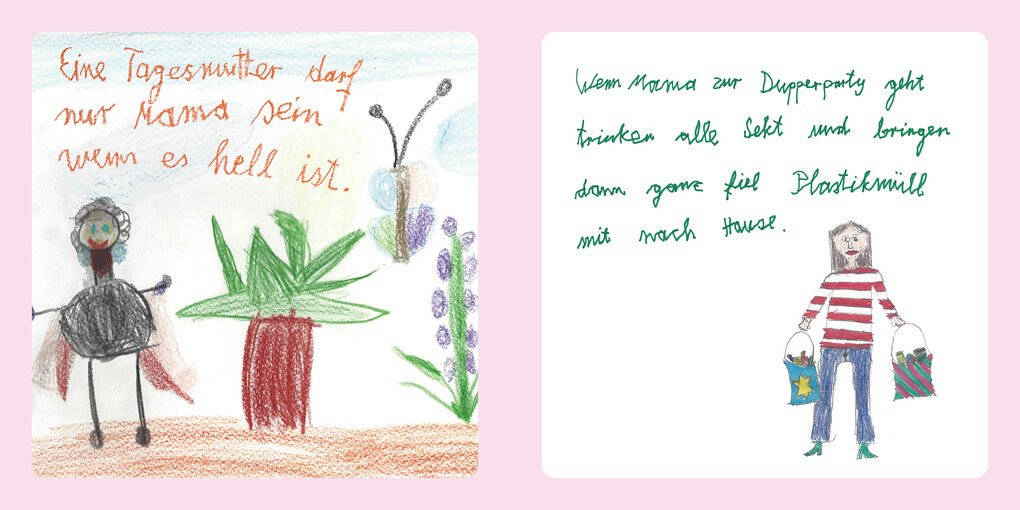 Eine Tagesmutter darf
nur Mama sein
wenn es hell ist.
Wenn Mama zur Dupperparty geht
trinken alle Sekt und bringen
dann ganz fiel Plastikmüll
mit nach Hause.